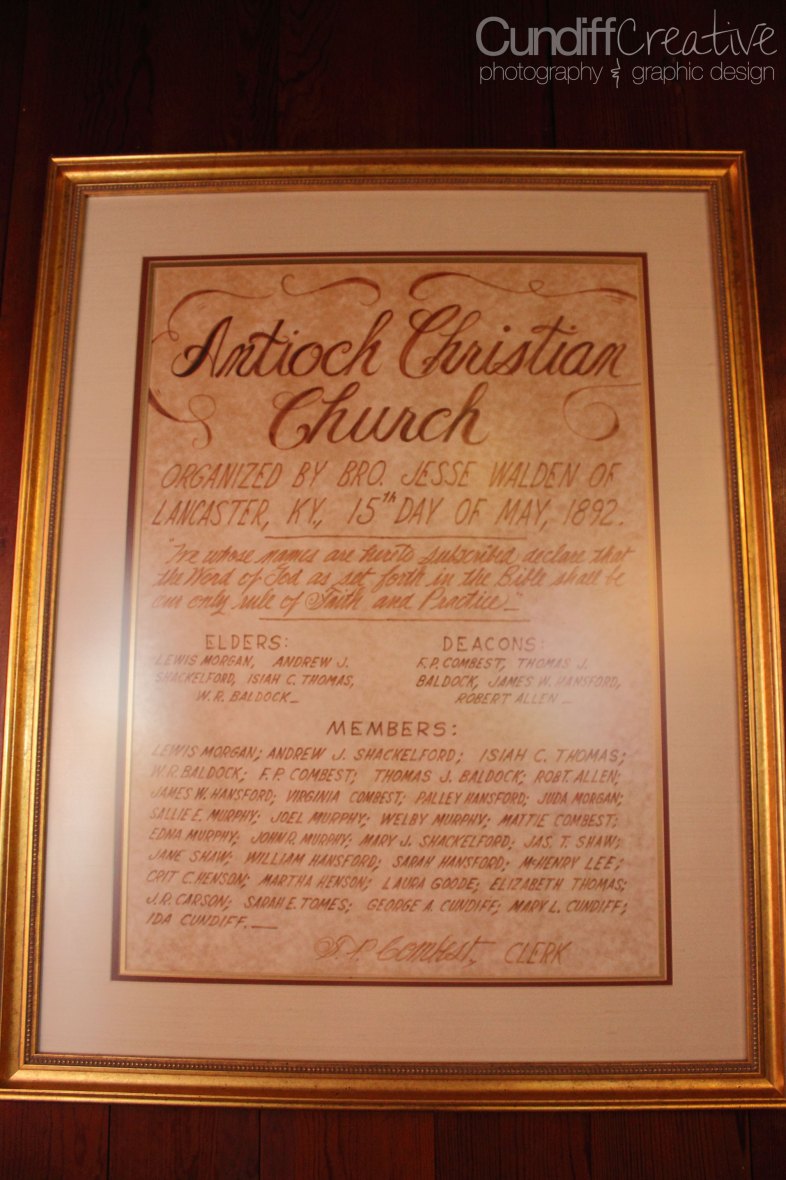 CundiffCreative
photography & graphic design
Antioch Christian
Church
ORGANIZED BY BRO. JESSE WALDEN OF
LANCASTER, KY., 15th DAY OF MAY, 1892.
"We whose names are hereto subscribed, declare that
the Word of God as set forth in the Bible shall be
our only rule of Faith and Practice._"
ELDERS:
LEWIS MORGAN, ANDREW J.
SHACKELFORD, ISIAH C. THOMAS,
W.R. BALDOCK_
DEACONS:
F.P. COMBEST, THOMAS J.
BALDOCK, JAMES W. HANSFORD,
ROBERT ALLEN_
MEMBERS:
LEWIS MORGAN; ANDREW J. SHACKELFORD; ISIAH C. THOMAS;
W.R. BALDOCK; F.P. COMBEST; THOMAS J. BALDOCK; ROBT. ALLEN;
JAMES W. HANSFORD; VIRGINIA COMBEST; PALLEY HANSFORD; JUDA MORGAN;
SALLIE E. MURPHY; JOEL MURPHY; WELBY MURPHY; MATTIE COMBEST;
EDNA MURPHY; JOHN R. MURPHY; MARY J. SHACKELFORD; JAS. T. SHAW;
JANE SHAW; WILLIAM HANSFORD; SARAH HANSFORD; McHENRY LEE;
CRIT C. HENSON; MARTHA HENSON; LAURA GOODE; ELIZABETH THOMAS;
J.R. CARSON; SARAH E. TOMES; GEORGE A. CUNDIFF; MARY L. CUNDIFF;
IDA CUNDIFF.__
F. P. Combest, CLERK